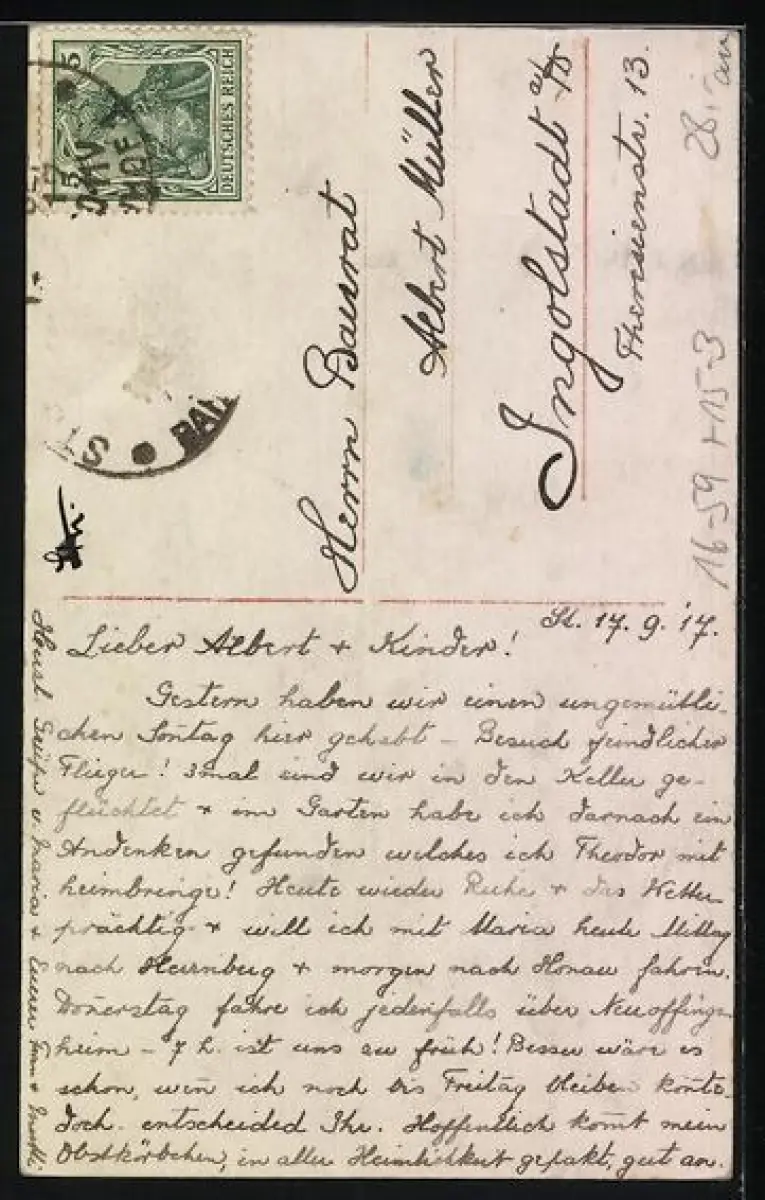 DEUTSCHES REICH
5 5
BAH
Herrn Baurat
Albert Müller
Ingolstadt a/D
Theresienstr. 13.
16-59 + 15-3
St. 17. 9. '17.
Lieber Albert + Kinder!
Gestern haben wir einen ungemütli-
chen Sontag hier gehabt – Besuch feindlicher
Flieger! 3mal sind wir in den Keller ge-
flüchtet + im Garten habe ich darnach ein
Andenken gefunden welches ich Theodor mit
heimbringe! Heute wieder Ruhe + das Wetter
prächtig + will ich mit Maria heute Mittag
nach + morgen nach Honau fahren.
Donerstag fahre ich jedenfalls über Neuoffingen
heim – 7 h. ist uns zu früh! Besser wäre es
schon, wen ich noch bis Freitag bleiben könte
doch entscheided Ihr. Hoffentlich komt mein
Obstkörbchen, in aller Heimlichkeit gepakt, gut an.
Herzl. Grüße v. Maria + Eurer